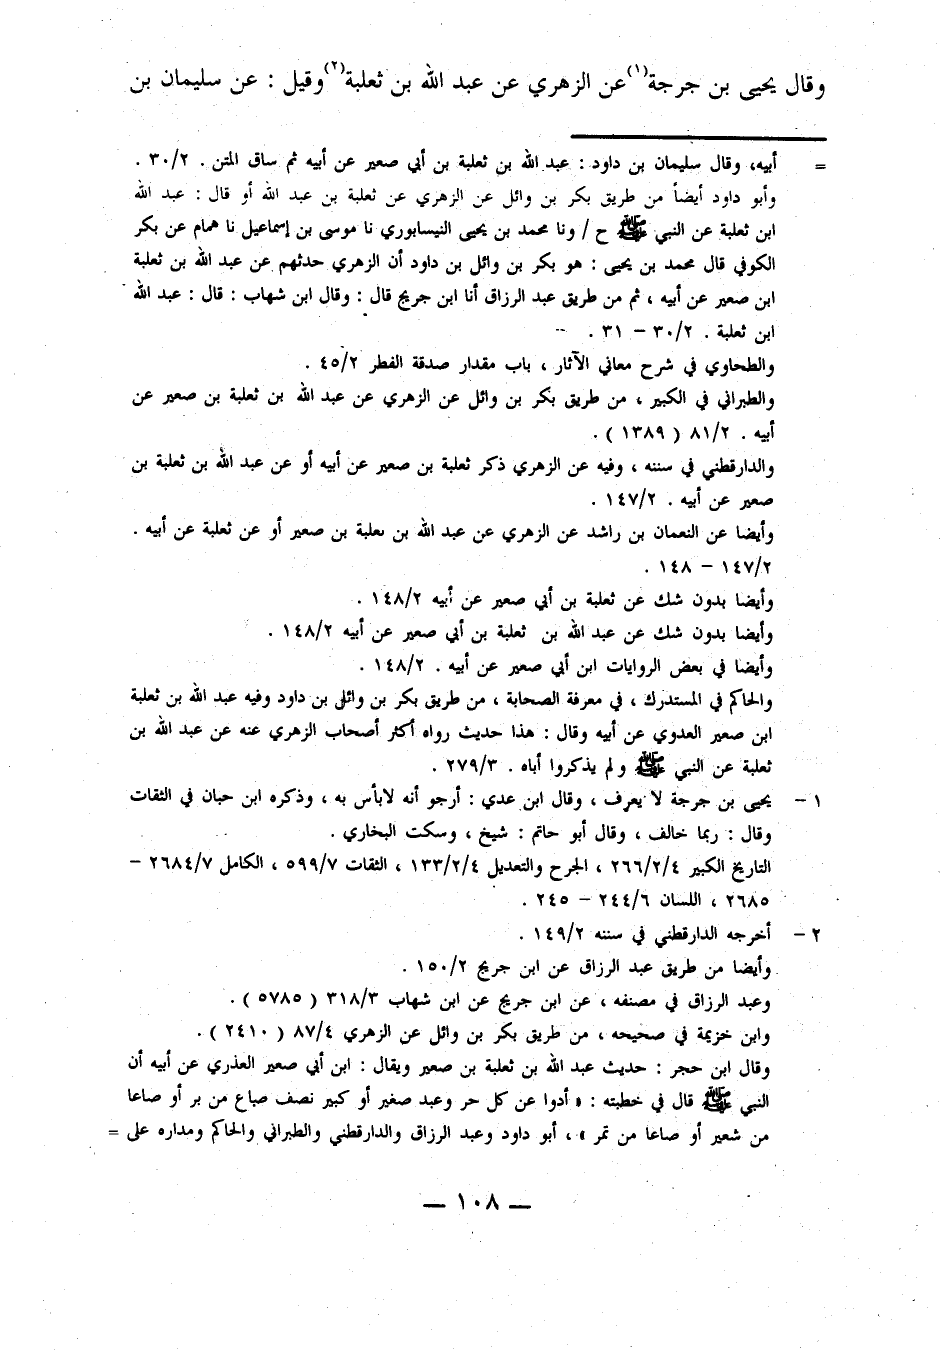 وقال يحيى بن جرجة(١) عن الزهري عن عبد الله بن ثعلبة(٢) وقيل : عن سليمان بن
= أبيه، وقال سليمان بن داود : عبد الله بن ثعلبة بن أبي صعير عن أبيه ثم ساق المتن . ٣٠/٢ .
وأبو داود أيضاً من طريق بكر بن وائل عن الزهري عن ثعلبة بن عبد الله أو قال : عبد الله
ابن ثعلبة عن النبي ﷺ ح / ونا محمد بن يحيى النيسابوري نا موسى بن إسماعيل نا همام عن بكر
الكوفي قال محمد بن يحيى : هو بكر بن وائل بن داود أن الزهري حدثهم عن عبد الله بن ثعلبة
ابن صعير عن أبيه ، ثم من طريق عبد الرزاق أنا ابن جريج قال : وقال ابن شهاب : قال : عبد الله
ابن ثعلبة . ٣٠/٢ – ٣١ .
والطحاوي في شرح معاني الآثار ، باب مقدار صدقة الفطر ٤٥/٢ .
والطبراني في الكبير ، من طريق بكر بن وائل عن الزهري عن عبد الله بن ثعلبة بن صعير عن
أبيه . ٨١/٢ ( ١٣٨٩ ) .
والدارقطني في سننه ، وفيه عن الزهري ذكر ثعلبة بن صعير عن أبيه أو عن عبد الله بن ثعلبة بن
صعير عن أبيه . ١٤٧/٢ .
وأيضا عن النعمان بن راشد عن الزهري عن عبد الله بن ثعلبة بن صعير أو عن ثعلبة عن أبيه .
١٤٧/٢ – ١٤٨ .
وأيضا بدون شك عن ثعلبة بن أبي صعير عن أبيه ١٤٨/٢ .
وأيضا بدون شك عن عبد الله بن ثعلبة بن أبي صعير عن أبيه ١٤٨/٢ .
وأيضا في بعض الروايات ابن أبي صعير عن أبيه . ١٤٨/٢ .
والحاكم في المستدرك ، في معرفة الصحابة ، من طريق بكر بن وائل بن داود وفيه عبد الله بن ثعلبة
ابن صعير العدوي عن أبيه وقال : هذا حديث رواه أكثر أصحاب الزهري عنه عن عبد الله بن
ثعلبة عن النبي ﷺ ولم يذكروا أباه . ٢٧٩/٣ .
١ – يحيى بن جرجة لا يعرف ، وقال ابن عدي : أرجو أنه لابأس به ، وذكره ابن حبان في الثقات
وقال : ربما خالف ، وقال أبو حاتم : شيخ ، وسكت البخاري .
التاريخ الكبير ٢٦٦/٢/٤ ، الجرح والتعديل ١٣٣/٢/٤ ، الثقات ٥٩٩/٧ ، الكامل ٢٦٨٤/٧ –
٢٦٨٥ ، اللسان ٢٤٤/٦ – ٢٤٥ .
٢ – أخرجه الدارقطني في سننه ١٤٩/٢ .
وأيضا من طريق عبد الرزاق عن ابن جريج ١٥٠/٢ .
وعبد الرزاق في مصنفه ، عن ابن جريج عن ابن شهاب ٣١٨/٣ ( ٥٧٨٥ ) .
وابن خزيمة في صحيحه ، من طريق بكر بن وائل عن الزهري ٨٧/٤ ( ٢٤١٠ ) .
وقال ابن حجر : حديث عبد الله بن ثعلبة بن صعير ويقال : ابن أبي صعير العذري عن أبيه أن
النبي ﷺ قال في خطبته : « أدوا عن كل حر وعبد صغير أو كبير نصف صباع من بر أو صاعا
من شعير أو صاعا من تمر » ، أبو داود وعبد الرزاق والدارقطني والطبراني والحاكم ومداره على =
— ١٠٨ —